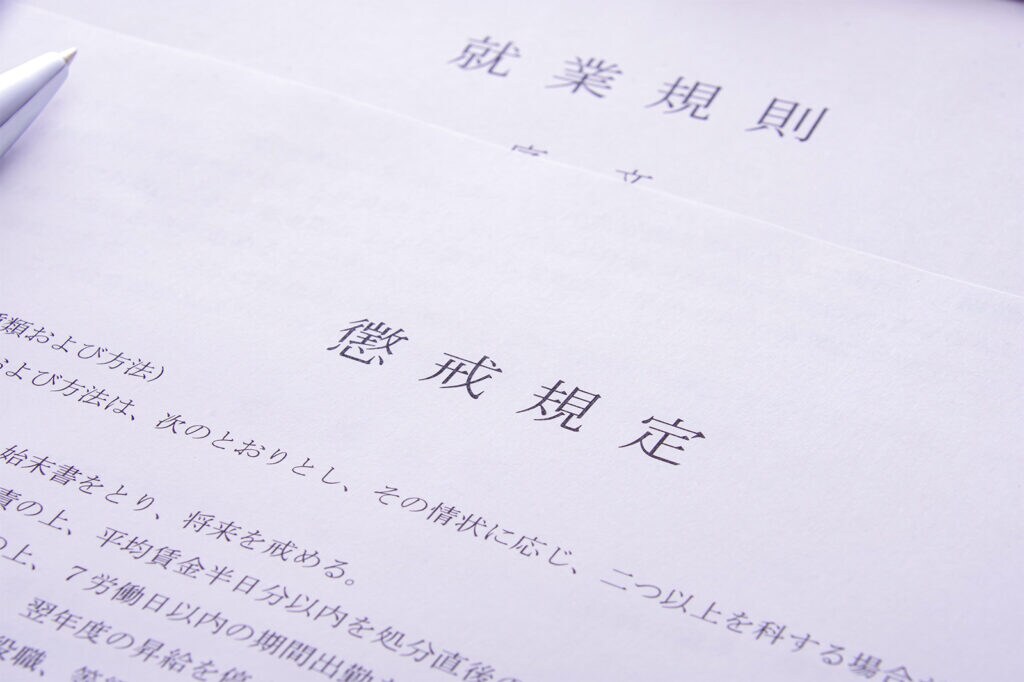 就業規則
懲戒規定
類および方法）
および方法は、次のとおりとし、その情状に応じ、二つ以上を科する場合が
始末書をとり、将来を戒める。
責の上、平均賃金半日分以内を処分直後の
の上、７労働日以内の期間出勤
翌年度の昇給を停
役職、等